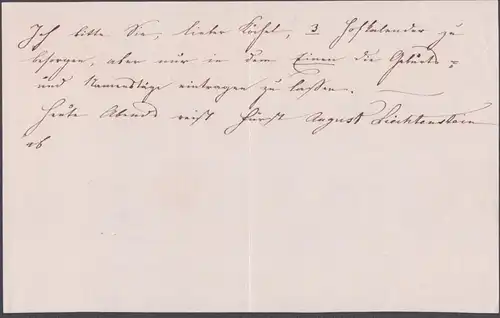 Ich bitte Sie, lieber Köchel, 3 Hofkalender zu
besorgen, aber nur in dem Einen die Geburts=
und Namenstäge eintragen zu laßen. —
Heute Abends reist Fürst August Liechtenstein
ab